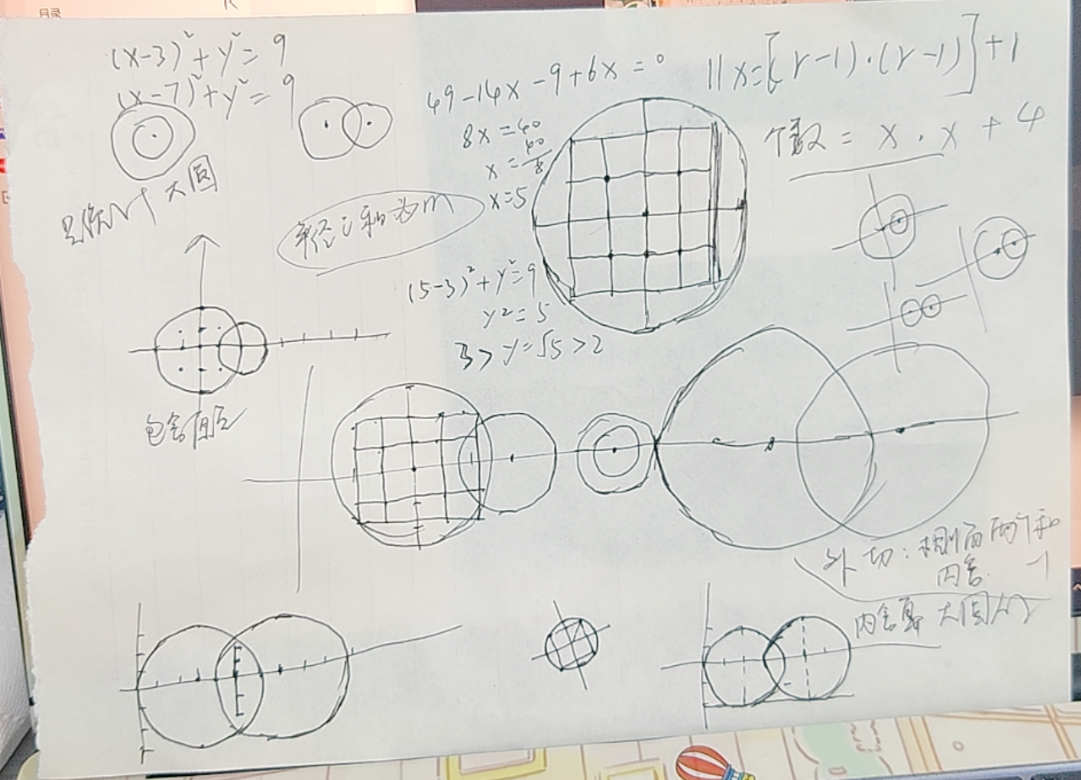 目录
(x-3)²+y²=9
(x-7)²+y²=9
49-14x-9+6x=0
8x=40
x=40/8
x=5
11x=[(r-1)·(r-1)]+1
个数=x·x+4
大圆
半径之和为m
(5-3)²+y²=9
y²=5
3>y=√5>2
包含
外切:相
内含
内含算大圆